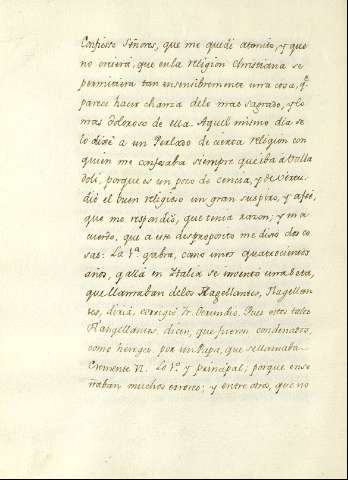 Confieso Señores, que me quedé atonito, y que
no creierá, que en la religion Christiana se
permitiera tan ensensibremente una cosa, q.e
parece hacer chanza delo mas sagrado, y lo
mas doloroso de ella. Aquel mismo dia se
lo dixe a un Perlado de cierta religion con
quien me confesaba siempre que iba à Valla
dolì, porque es un pozo de cencia, y
dió el buen religioso un gran suspiro, y
que me respondiò, que tenia razon; y m a
cuerdo, que a este desproposito me dixo dos co
sas: La 1.a que abra, como unos quatrocientos
años, q allà en Italia se inventó una beta,
que llamaban delos Fragellantes, Flagellan
tes, dixiá, corrigió Fr. Gerundio. Pues estos tales
Flangellantes, dicen, que fueron condenatos,
como hereges por un Papa, que se llamaba
Cremente VI. Lo 1.o y principal; porque ense
ñaban muchos errores; y entre otros, que no